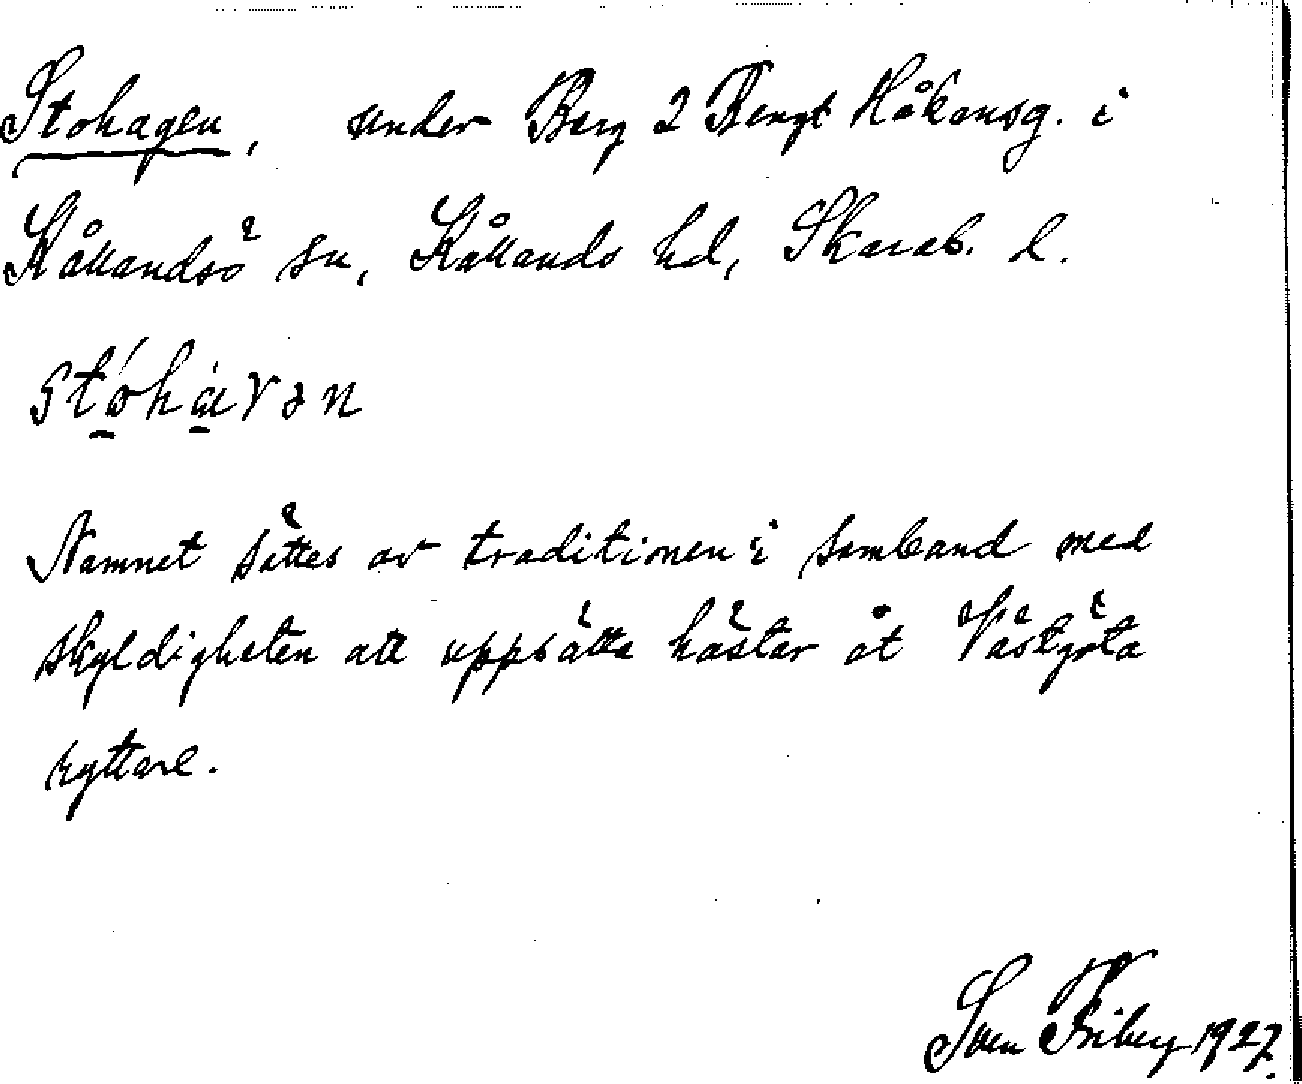 Stohagen, under Berg 2 Bengt Håkansg. i
Kållandsö sn, Kållands hd, Skarab. l.
stóhàvən
Namnet sättes av traditionen i samband med
skyldigheten att uppsätta hästar åt Västgöta
ryttare.
Sven Friberg 1927.